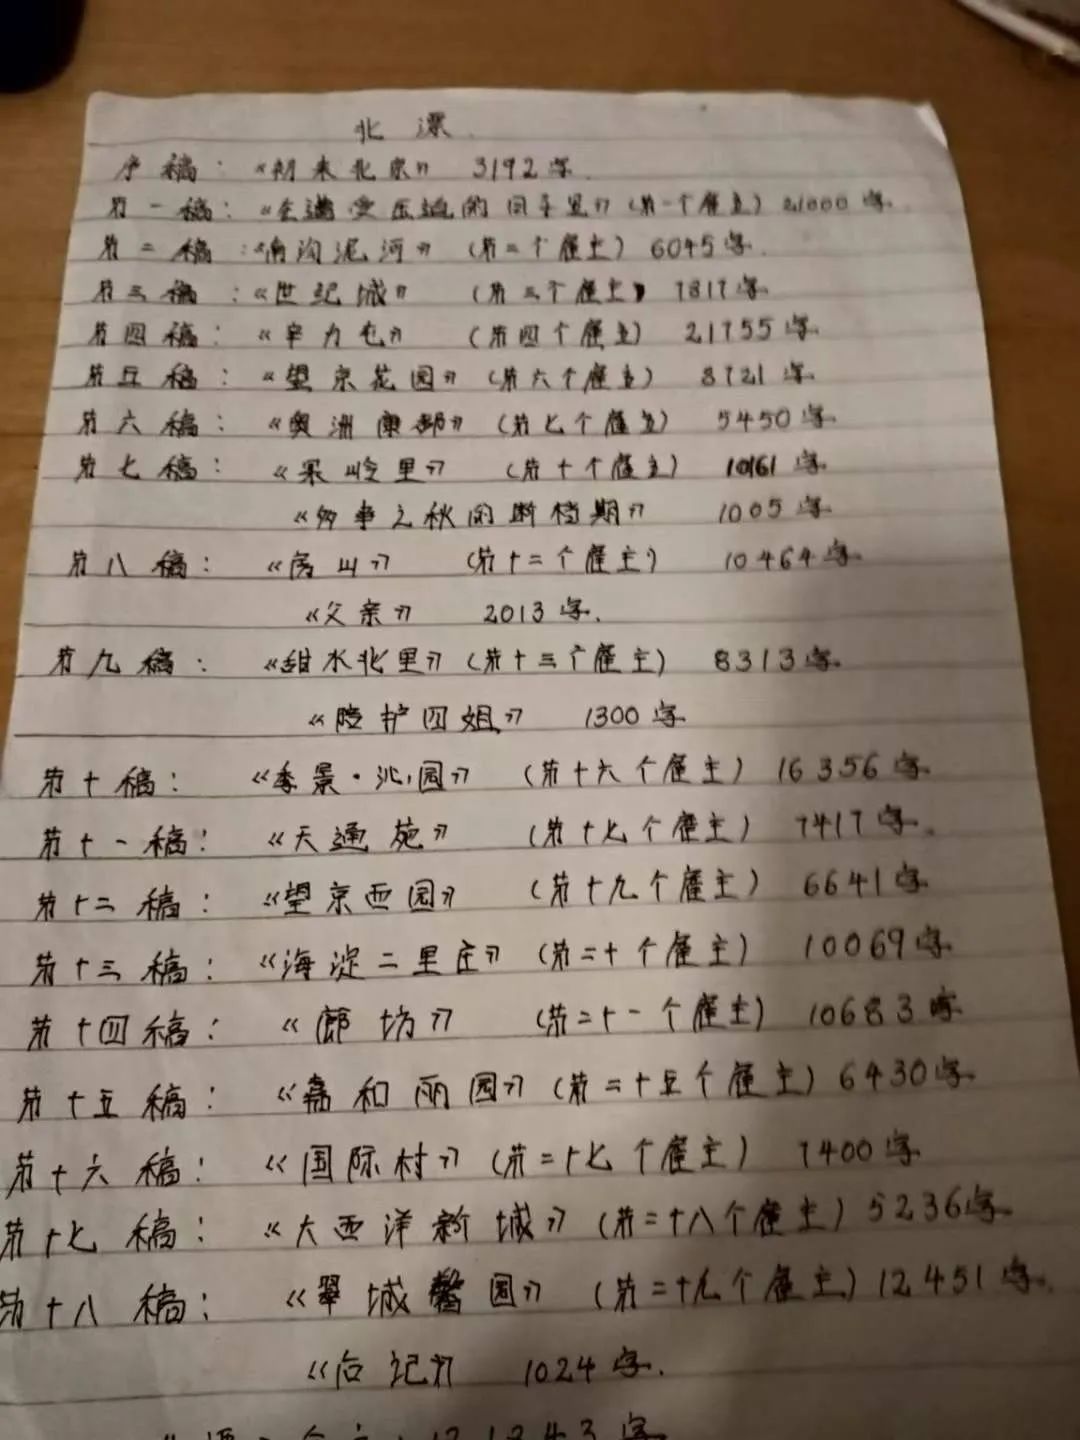 北漂
序稿：《初来北京》 3192字.
第一稿：《全遭受压迫的同乎里》（第一个雇主）21000字.
第二稿：《南沟泥河》（第二个雇主）6045字.
第三稿：《世纪城》（第三个雇主）7817字.
第四稿：《辛力屯》（第四个雇主）21755字.
第五稿：《望京花园》（第六个雇主）8721字.
第六稿：《奥洲康都》（第七个雇主）5450字.
第七稿：《果岭里》（第十个雇主）10161字.
《多事之秋的断档期》 1005字.
第八稿：《房山》（第十二个雇主）10464字.
《父亲》 2013字.
第九稿：《甜水北里》（第十三个雇主）8313字.
《陪护四姐》 1300字
第十稿：《季景·沁园》（第十六个雇主）16356字.
第十一稿：《天通苑》（第十七个雇主）7417字.
第十二稿：《望京西园》（第十九个雇主）6641字
第十三稿：《海淀二里庄》（第二十个雇主）10069字.
第十四稿：《廊坊》（第二十一个雇主）10683字
第十五稿：《嘉和丽园》（第二十五个雇主）6430字.
第十六稿：《国际村》（第二十七个雇主）7400字
第十七稿：《大西洋新城》（第二十八个雇主）5236字.
第十八稿：《翠城馨园》（第二十九个雇主）12451字.
《后记》 1024字.